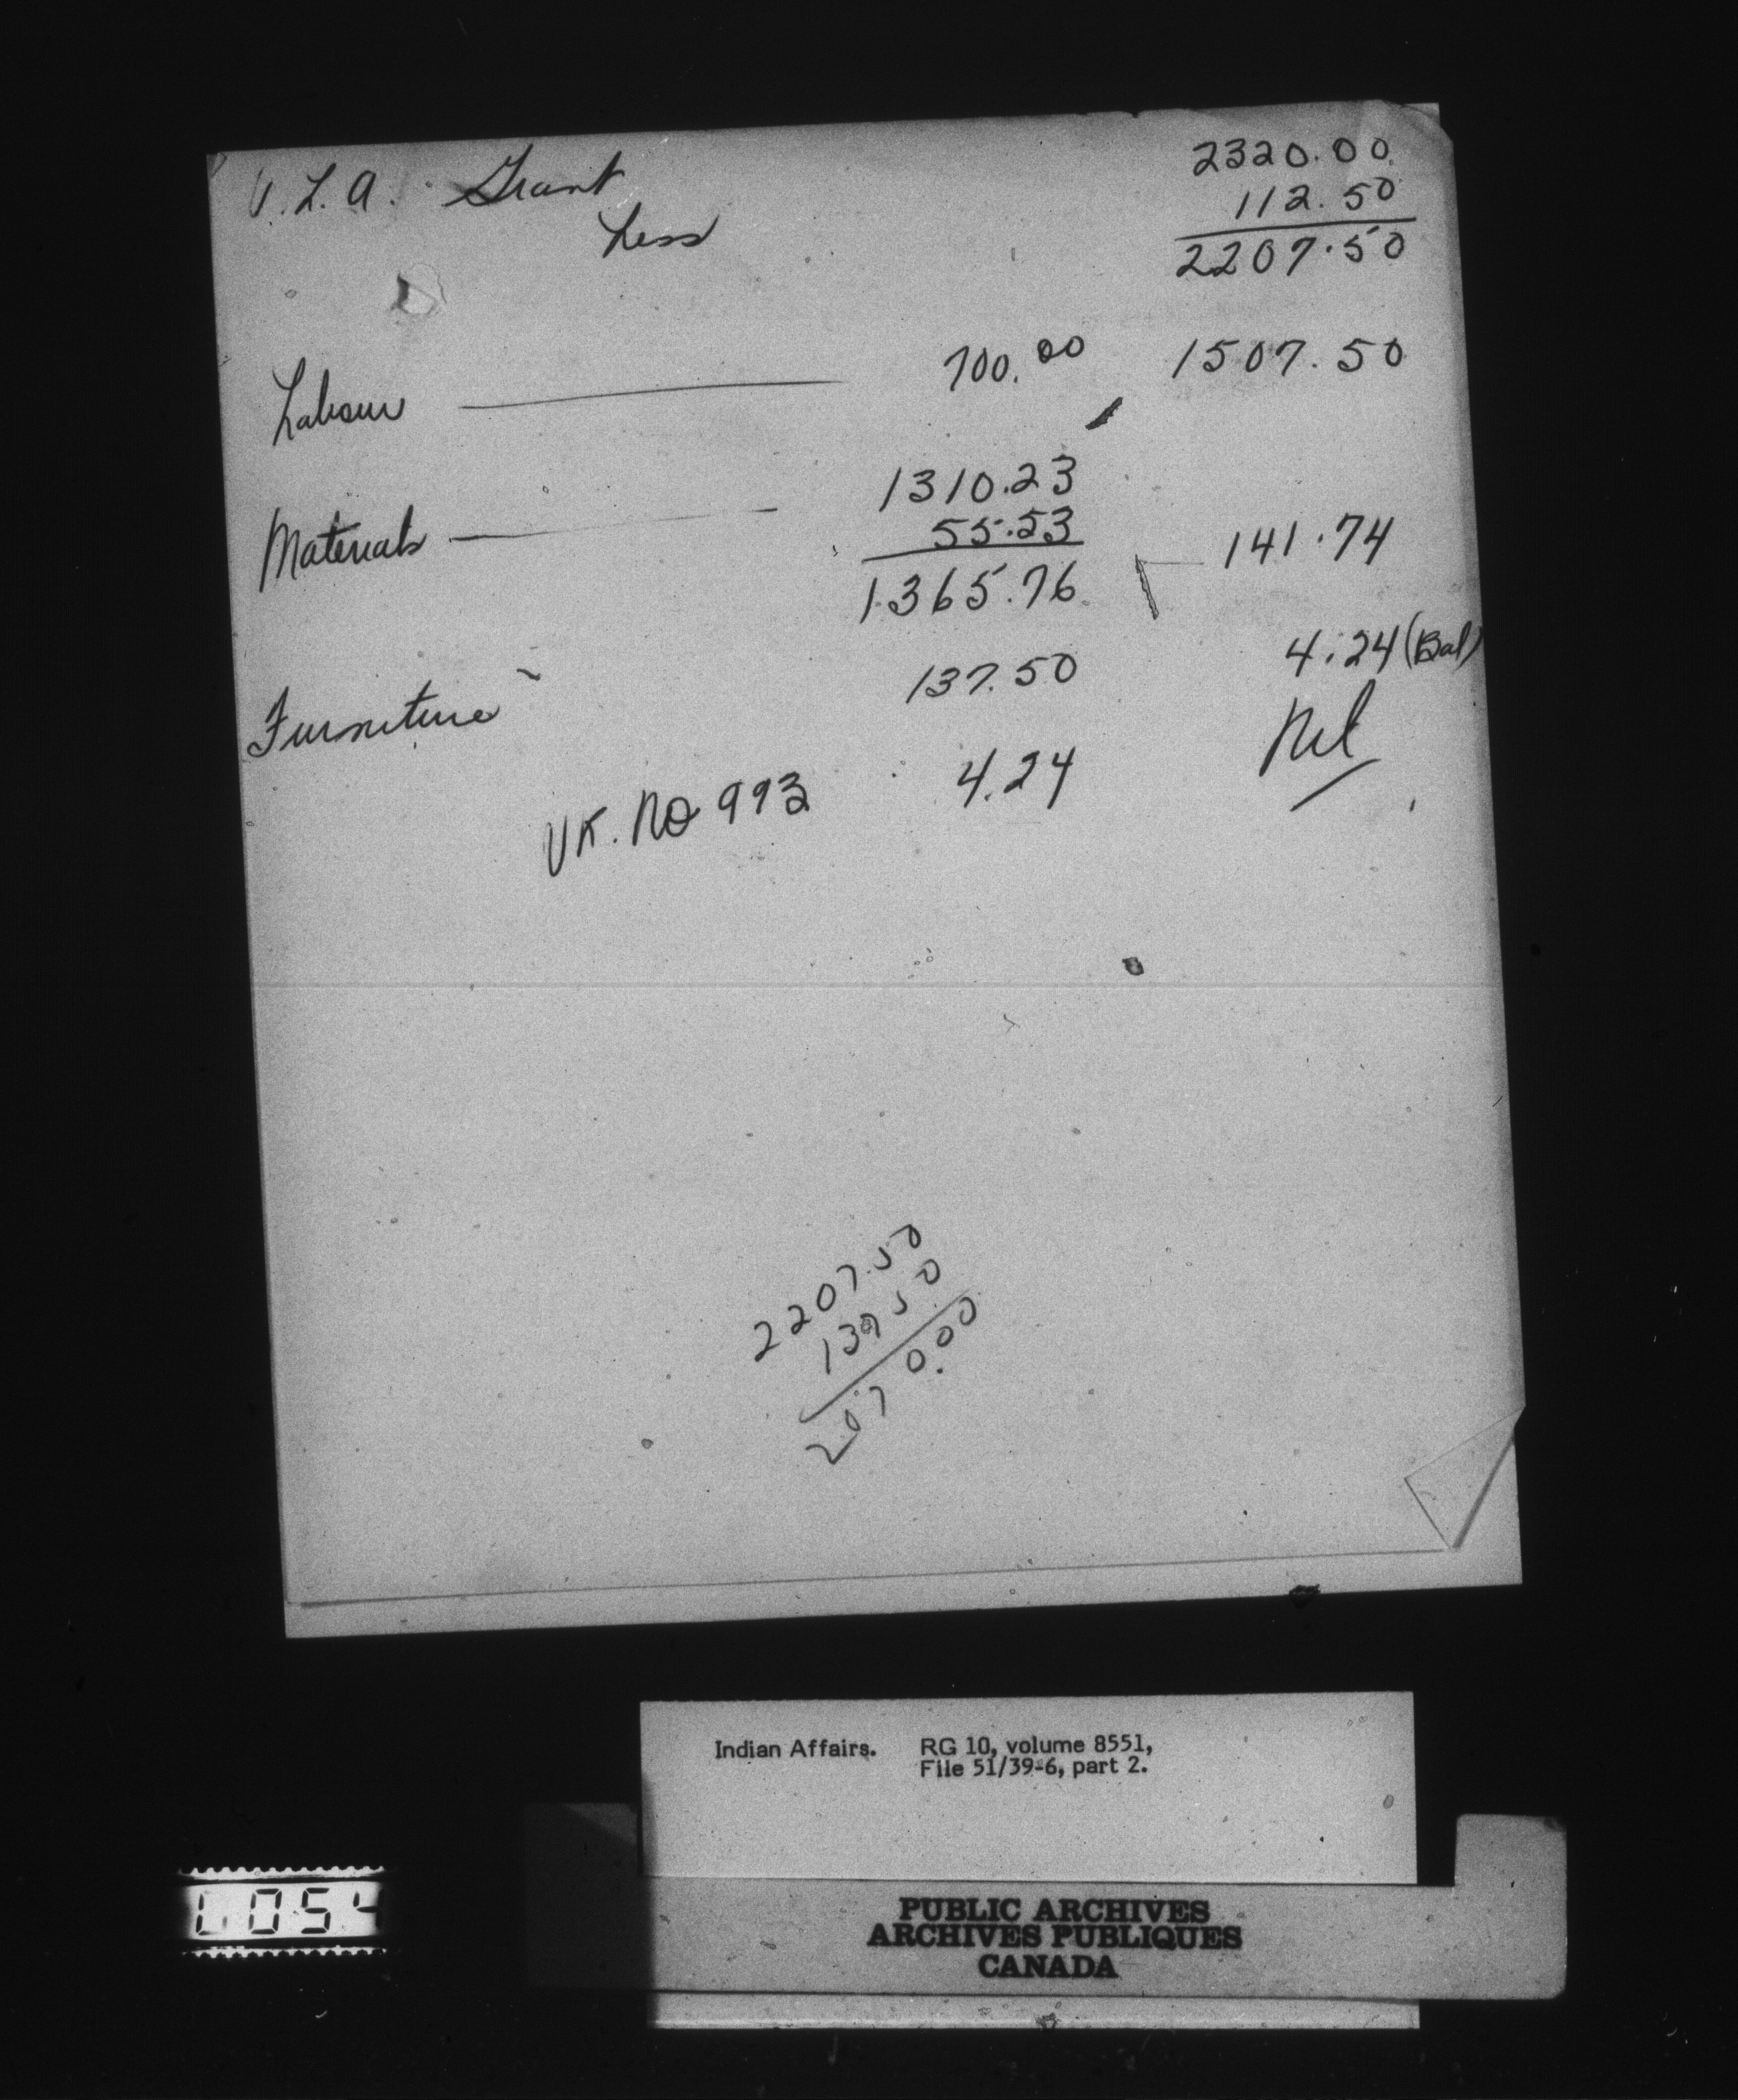 V.L.A. Grant 2320.00
Less 112.50
2207.50
Labour 700.00 1507.50
Materials 1310.23
55.53 141.74
1365.76
4.24 (Bal)
Furniture 137.50
Nil
VR. NO 993 4.24
2207.50
137 50
2070.00
Indian Affairs. RG 10, volume 8551,
File 51/39-6, part 2.
PUBLIC ARCHIVES
ARCHIVES PUBLIQUES
CANADA